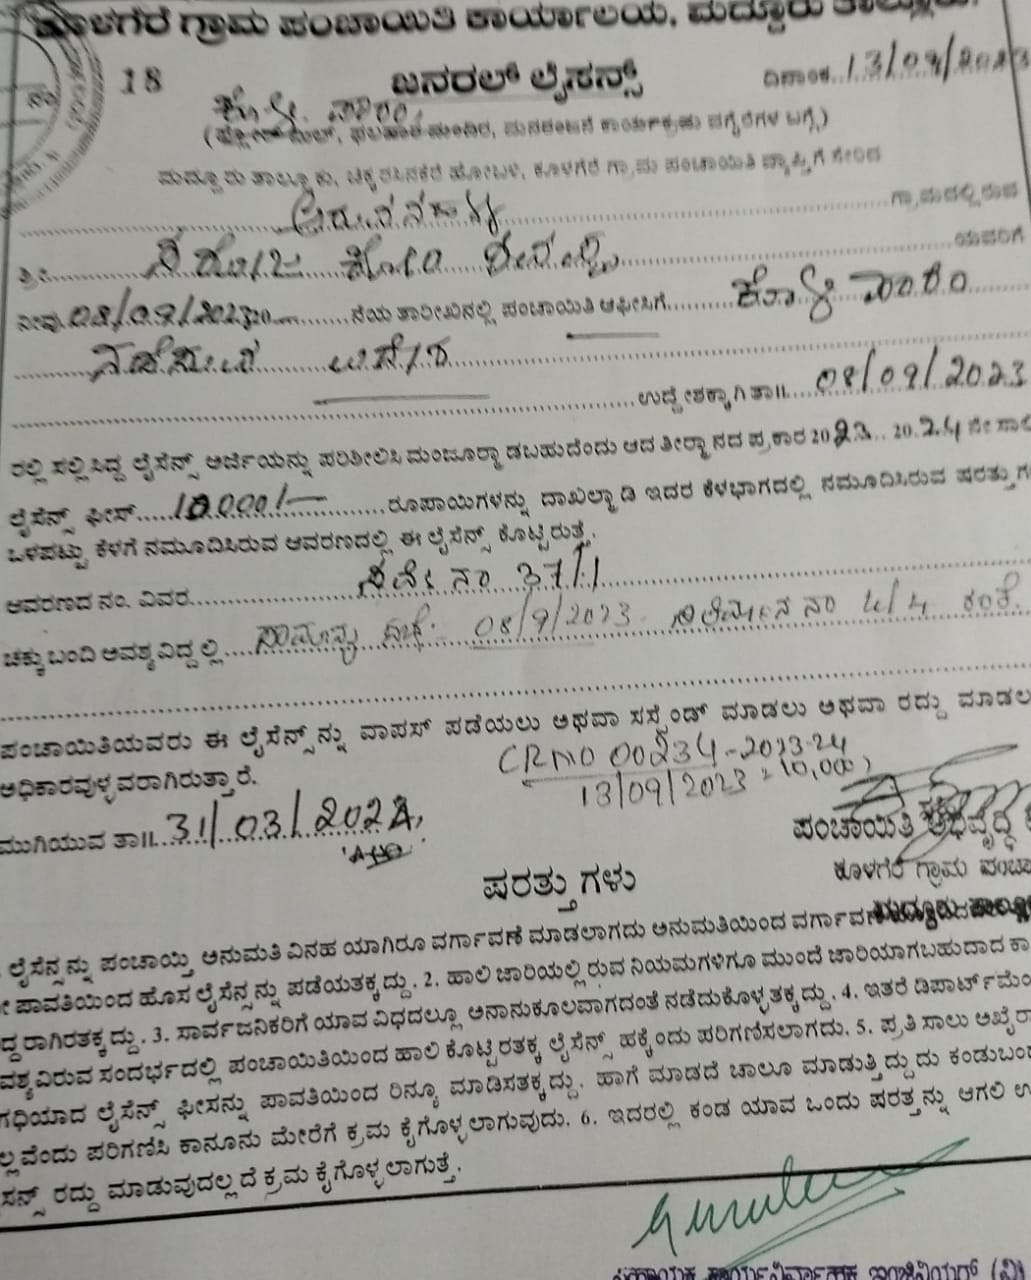 ಕೂಳಗೆರೆ ಗ್ರಾಮ ಪಂಚಾಯಿತಿ ಕಾರ್ಯಾಲಯ, ಮದ್ದೂರು ತಾಲ್ಲೂಕು.
18 ಜನರಲ್ ಲೈಸೆನ್ಸ್ ದಿನಾಂಕ 13/09/2023
ಕೋಳಿ ಫಾರಂ,
(ಫ್ಲೋರ್ ಮಿಲ್, ಫಲಹಾರ ಮಂದಿರ, ಮನರಂಜನೆ ಕಾರ್ಯಕ್ರಮ ವಗೈರೆಗಳ ಬಗ್ಗೆ)
ಮದ್ದೂರು ತಾಲ್ಲೂಕು, ಚಿಕ್ಕರಸಿನಕೆರೆ ಹೋಬಳಿ, ಕೂಳಗೆರೆ ಗ್ರಾಮ ಪಂಚಾಯಿತಿ ವ್ಯಾಪ್ತಿಗೆ ಸೇರಿದ
ಗ್ರಾಮದಲ್ಲಿರುವ
ಶ್ರೀ ಯವರಿಗೆ
ನೀವು 08/09/2023 20 ನೆಯ ತಾರೀಖಿನಲ್ಲಿ ಪಂಚಾಯಿತಿ ಆಫೀಸಿಗೆ ಕೋಳಿ ಫಾರಂ
ನಡೆಸುವ
ಉದ್ದೇಶಕ್ಕಾಗಿ ತಾ॥ 08/09/2023
ರಲ್ಲಿ ಸಲ್ಲಿಸಿದ್ದ ಲೈಸೆನ್ಸ್ ಅರ್ಜಿಯನ್ನು ಪರಿಶೀಲಿಸಿ ಮಂಜೂರ್ಮಾಡಬಹುದೆಂದು ಆದ ತೀರ್ಮಾನದ ಪ್ರಕಾರ 2023 2024 ನೇ ಸಾಲಿ
ಲೈಸೆನ್ಸ್ ಫೀಸ್ 10000/- ರೂಪಾಯಿಗಳನ್ನು ದಾಖಲ್ಮಾಡಿ ಇದರ ಕೆಳಭಾಗದಲ್ಲಿ ನಮೂದಿಸಿರುವ ಷರತ್ತುಗ
ಒಳಪಟ್ಟು ಕೆಳಗೆ ನಮೂದಿಸಿರುವ ಆವರಣದಲ್ಲಿ ಈ ಲೈಸೆನ್ಸ್ ಕೊಟ್ಟಿರುತ್ತೆ.
ಆವರಣದ ನಂ. ವಿವರ ಸರ್ವೇ ನಂ 37/1
ಚಕ್ಕುಬಂದಿ ಅವಶ್ಯವಿದ್ದಲ್ಲಿ ಸಾಮಾನ್ಯ ಸಭೆ 08/9/2023 ತೀರ್ಮಾನ ನಂ 4/4 ರಂತೆ.
ಪಂಚಾಯಿತಿಯವರು ಈ ಲೈಸೆನ್ಸ್‌ನ್ನು ವಾಪಸ್ ಪಡೆಯಲು ಅಥವಾ ಸಸ್ಪೆಂಡ್ ಮಾಡಲು ಅಥವಾ ರದ್ದು ಮಾಡಲ
ಅಧಿಕಾರವುಳ್ಳವರಾಗಿರುತ್ತಾರೆ. CRNO 00234-2023-24
13/09/2023 = 10,000)
ಮುಗಿಯುವ ತಾ॥ 31/03/2024, ಪಂಚಾಯಿತಿ ಅಭಿವೃದ್ಧಿ
ಕೂಳಗೆರೆ ಗ್ರಾಮ ಪಂಚಾ
ಷರತ್ತುಗಳು
ಮದ್ದೂರು ತಾಲ್ಲೂ
ಲೈಸೆನ್ಸನ್ನು ಪಂಚಾಯ್ತಿ ಅನುಮತಿ ವಿನಹ ಯಾಗಿರೂ ವರ್ಗಾವಣೆ ಮಾಡಲಾಗದು ಅನುಮತಿಯಿಂದ ವರ್ಗಾವಣೆ
ಪಾವತಿಯಿಂದ ಹೊಸ ಲೈಸೆನ್ಸನ್ನು ಪಡೆಯತಕ್ಕದ್ದು. 2. ಹಾಲಿ ಜಾರಿಯಲ್ಲಿರುವ ನಿಯಮಗಳಿಗೂ ಮುಂದೆ ಜಾರಿಯಾಗಬಹುದಾದ ಕಾ
ದ್ಧರಾಗಿರತಕ್ಕದ್ದು. 3. ಸಾರ್ವಜನಿಕರಿಗೆ ಯಾವ ವಿಧದಲ್ಲೂ ಅನಾನುಕೂಲವಾಗದಂತೆ ನಡೆದುಕೊಳ್ಳತಕ್ಕದ್ದು. 4. ಇತರೆ ಡಿಪಾರ್ಟ್‌ಮೆಂ
ವಶ್ಯವಿರುವ ಸಂದರ್ಭದಲ್ಲಿ ಪಂಚಾಯಿತಿಯಿಂದ ಹಾಲಿ ಕೊಟ್ಟಿರತಕ್ಕ ಲೈಸೆನ್ಸ್ ಹಕ್ಕೆಂದು ಪರಿಗಣಿಸಲಾಗದು. 5. ಪ್ರತಿ ಸಾಲು ಅಖೈರಾ
ಗಧಿಯಾದ ಲೈಸೆನ್ಸ್ ಫೀಸನ್ನು ಪಾವತಿಯಿಂದ ರಿನ್ಯೂ ಮಾಡಿಸತಕ್ಕದ್ದು. ಹಾಗೆ ಮಾಡದೆ ಚಾಲೂ ಮಾಡುತ್ತಿದ್ದುದು ಕಂಡುಬಂದ
ಲ್ಲವೆಂದು ಪರಿಗಣಿಸಿ ಕಾನೂನು ಮೇರೆಗೆ ಕ್ರಮ ಕೈಗೊಳ್ಳಲಾಗುವುದು. 6. ಇದರಲ್ಲಿ ಕಂಡ ಯಾವ ಒಂದು ಷರತ್ತನ್ನು ಆಗಲಿ ಉ
ಸನ್ಸ್ ರದ್ದು ಮಾಡುವುದಲ್ಲದೆ ಕ್ರಮ ಕೈಗೊಳ್ಳಲಾಗುತ್ತೆ.
ಸಹಾಯಕ ಕಾರ್ಯನಿರ್ವಾಹಕ ಇಂಜಿನಿಯರ್ (ವಿ)